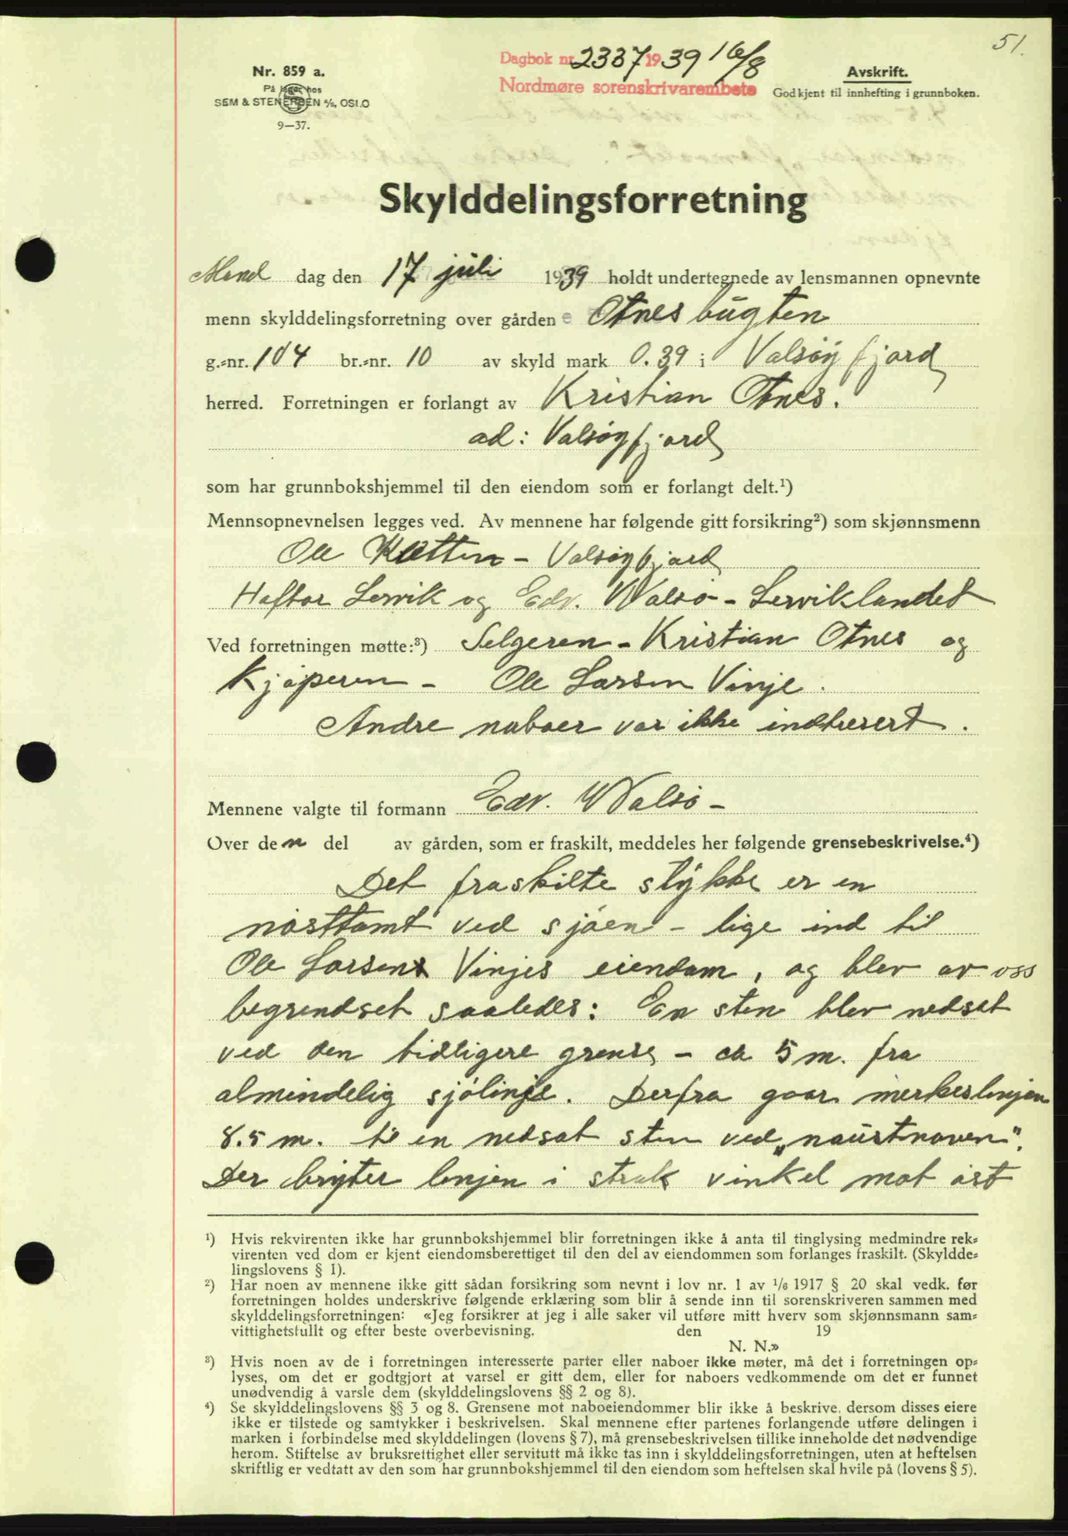 51.
Dagbok nr. 2337 1939 16/8
Nordmøre sorenskrivarembete
Nr. 859 a.
På lager hos
SEM & STENERSEN A/S, OSLO
9—37.
Avskrift.
Godkjent til innhefting i grunnboken.
Skylddelingsforretning
Mand dag den 17 juli 1939 holdt undertegnede av lensmannen opnevnte
menn skylddelingsforretning over gården Otnesbugten
g.-nr. 104 br.-nr. 10 av skyld mark 0.39 i Valsøyfjord
herred. Forretningen er forlangt av Kristian Otnes.
ad: Valsøyfjord
som har grunnbokshjemmel til den eiendom som er forlangt delt.¹)
Mennsopnevnelsen legges ved. Av mennene har følgende gitt forsikring²) som skjønnsmenn
Ole - Valsøyfjord
Haftor Lervik og Edv. Walsø - Lerviklandet
Ved forretningen møtte:³) Selgeren - Kristian Otnes og
Kjøperen - Ole Larsen Vinje.
Andre naboer var ikke indtresert.
Mennene valgte til formann Edv. Walsø -
Over den del av gården, som er fraskilt, meddeles her følgende grensebeskrivelse.⁴)
Det fraskilte stykke er en
nosttomt ved sjøen - lige ind til
Ole Larsens Vinjes eiendom, og blev av oss
begrendset saaledes: En sten blev nedsat
ved den tidligere grense - ca 5 m. fra
almindelig sjølinje. Derfra gaar merkeslinjen
8.5 m. til en nedsat sten ved „naustnoven".
Der bryter linjen i strak vinkel mot øst
¹) Hvis rekvirenten ikke har grunnbokshjemmel blir forretningen ikke å anta til tinglysing medmindre rek-
virenten ved dom er kjent eiendomsberettiget til den del av eiendommen som forlanges fraskilt. (Skyldde-
lingslovens § 1).
²) Har noen av mennene ikke gitt sådan forsikring som nevnt i lov nr. 1 av 1/6 1917 § 20 skal vedk. før
forretningen holdes underskrive følgende erklæring som blir å sende inn til sorenskriveren sammen med
skylddelingsforretningen: «Jeg forsikrer at jeg i alle saker vil utføre mitt hverv som skjønnsmann sam-
vittighetsfullt og efter beste overbevisning. den 19
N. N.»
³) Hvis noen av de i forretningen interesserte parter eller naboer ikke møter, må det i forretningen op-
lyses, om det er godtgjort at varsel er gitt dem, eller for naboers vedkommende om det er funnet
unødvendig å varsle dem (skylddelingslovens §§ 2 og 8).
⁴) Se skylddelingslovens §§ 3 og 8. Grensene mot naboeiendommer blir ikke å beskrive, dersom disses eiere
ikke er tilstede og samtykker i beskrivelsen. Skal mennene efter partenes forlangende utføre delingen i
marken i forbindelse med skylddelingen (lovens § 7), må grensebeskrivelsen tillike inneholde det nødvendige
herom. Stiftelse av bruksrettighet eller servitutt må ikke tas inn i skylddelingsforretningen, uten at heftelsen
skriftlig er vedtatt av den som har grunnbokshjemmel til den eiendom som heftelsen skal hvile på (lovens § 5).